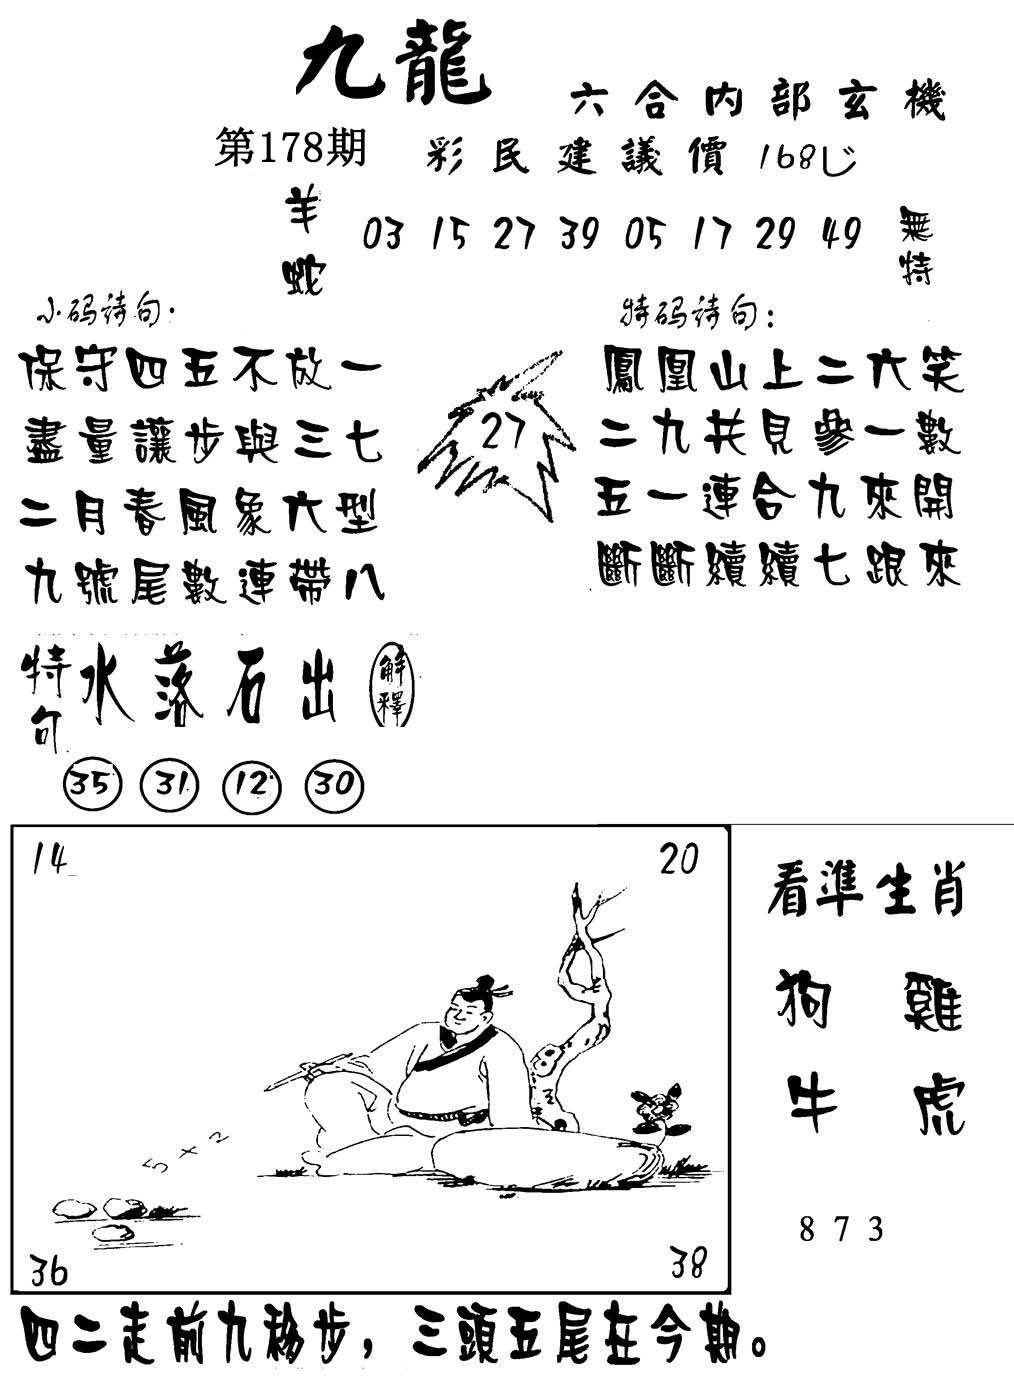 九龍
六合内部玄機
第178期
彩民建議價168じ
羊
蛇
03 15 27 39 05 17 29 49
無特
小码诗句.
特码诗句:
保守四五不放一
盡量讓步與三七
二月春風象六型
九號尾數連帶八
27
鳳凰山上二六笑
二九共見參一數
五一連合九來開
斷斷續續七跟來
特句 水落石出 解釋
35 31 12 30
14
20
5 x 2
36
38
看準生肖
狗 雞
牛 虎
8 7 3
四二走前九移步，三頭五尾在今期。